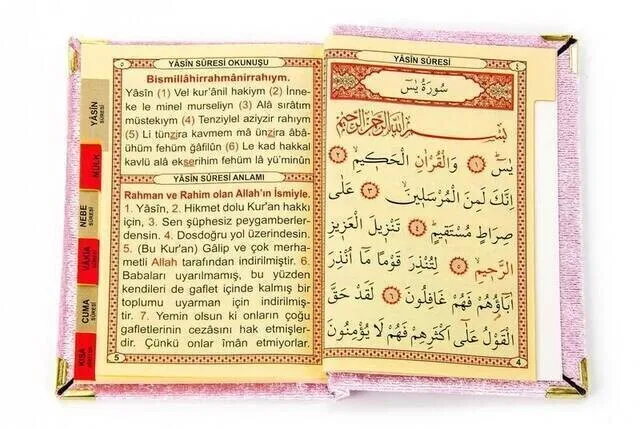 ٥
YÂSİN SÛRESİ OKUNUŞU
Bismillâhirrahmânirrahıym.
Yâsîn (1) Vel kur'ânil hakiym (2) İnne-
ke le minel murseliyn (3) Alâ sırâtım
müstekıym (4) Tenziylel aziyzir rahıym
(5) Li tünzira kavmem mâ ünzira âbâ-
ühüm fehüm ğâfilûn (6) Le kad hakkal
kavlü alâ ekserihim fehüm lâ yü'minûn
YÂSİN SÛRESİ ANLAMI
Rahman ve Rahim olan Allah'ın İsmiyle.
1. Yâsîn, 2. Hikmet dolu Kur'an hakkı
için, 3. Sen şüphesiz peygamberler-
densin. 4. Dosdoğru yol üzerindesin.
5. (Bu Kur'an) Gâlip ve çok merha-
metli Allah tarafından indirilmiştir. 6.
Babaları uyarılmamış, bu yüzden
kendileri de gaflet içinde kalmış bir
toplumu uyarman için indirilmiş-
tir. 7. Yemin olsun ki onların çoğu
gafletlerinin cezasını hak etmişler-
dir. Çünkü onlar îmân etmiyorlar.
5
YÂSİN
SÛRESİ
MÜLK
NEBE
SÛRESİ
VÂKIA
SÛRESİ
CUMA
SÛRESİ
KISA
YÂSİN SÛRESİ
٤
سُورَةُ يٰسٓ
بِسْمِ اللّٰهِ الرَّحْمٰنِ الرَّحِيمِ
يٰسٓ ﴿١﴾ وَالْقُرْاٰنِ الْحَكِيمِ ﴿٢﴾
اِنَّكَ لَمِنَ الْمُرْسَلِينَ ﴿٣﴾ عَلٰى
صِرَاطٍ مُسْتَقِيمٍ ﴿٤﴾ تَنْزِيلَ الْعَزِيزِ
الرَّحِيمِ ﴿٥﴾ لِتُنْذِرَ قَوْمًا مَٓا اُنْذِرَ
اٰبَٓاؤُهُمْ فَهُمْ غَافِلُونَ ﴿٦﴾ لَقَدْ حَقَّ
الْقَوْلُ عَلٰٓى اَكْثَرِهِمْ فَهُمْ لَا يُؤْمِنُونَ
4